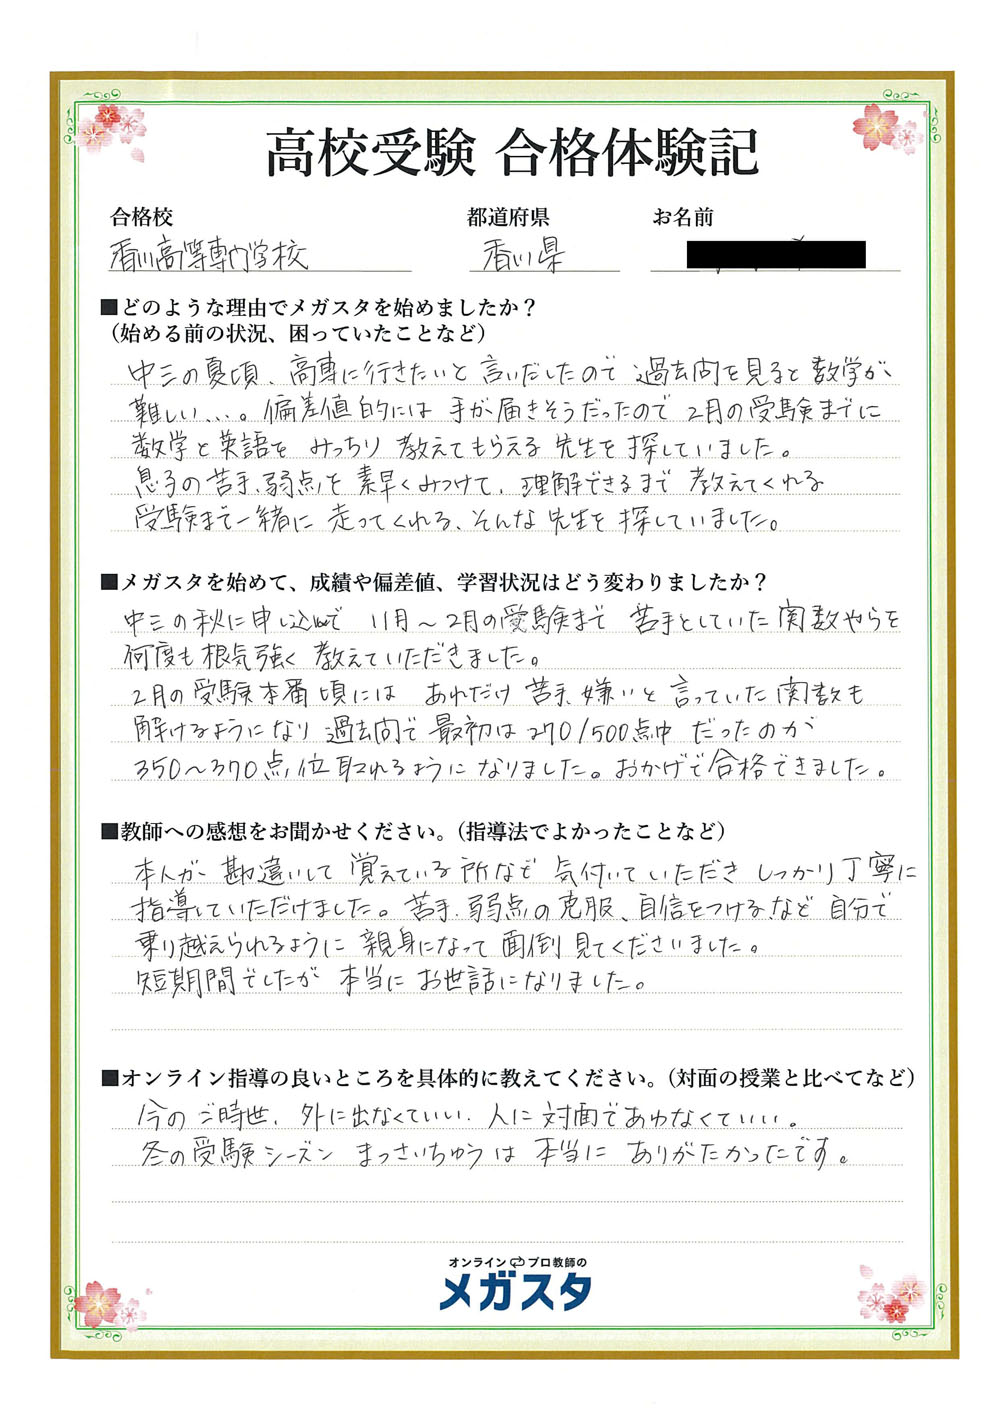 高校受験 合格体験記
合格校 都道府県 お名前
香川高等専門学校 香川県
■どのような理由でメガスタを始めましたか？
（始める前の状況、困っていたことなど）
中三の夏頃、高専に行きたいと言いだしたので過去問を見ると数学が、
難しい、、、。偏差値的には手が届きそうだったので2月の受験までに
数学と英語をみっちり教えてもらえる先生を探していました。
息子の苦手、弱点を素早くみつけて、理解できるまで教えてくれる
受験まで一緒に走ってくれる、そんな先生を探していました。
■メガスタを始めて、成績や偏差値、学習状況はどう変わりましたか？
中三の秋に申し込んで11月〜2月の受験まで苦手としていた関数やらを
何度も根気強く教えていただきました。
2月の受験本番頃にはあれだけ苦手、嫌いと言っていた関数も
解けるようになり過去問で最初は270/500点中だったのが
350〜370点位取れるようになりました。おかげで合格できました。
■教師への感想をお聞かせください。（指導法でよかったことなど）
本人が勘違いして覚えている所など気付いていただきしっかり丁寧に
指導していただけました。苦手、弱点の克服、自信をつけるなど自分で
乗り越えられるように親身になって面倒見てくださいました。
短期間でしたが本当にお世話になりました。
■オンライン指導の良いところを具体的に教えてください。（対面の授業と比べてなど）
今のご時世、外に出なくていい、人に対面であわなくていい。
冬の受験シーズンまっさいちゅうは本当にありがたかったです。
オンライン プロ教師の
メガスタ